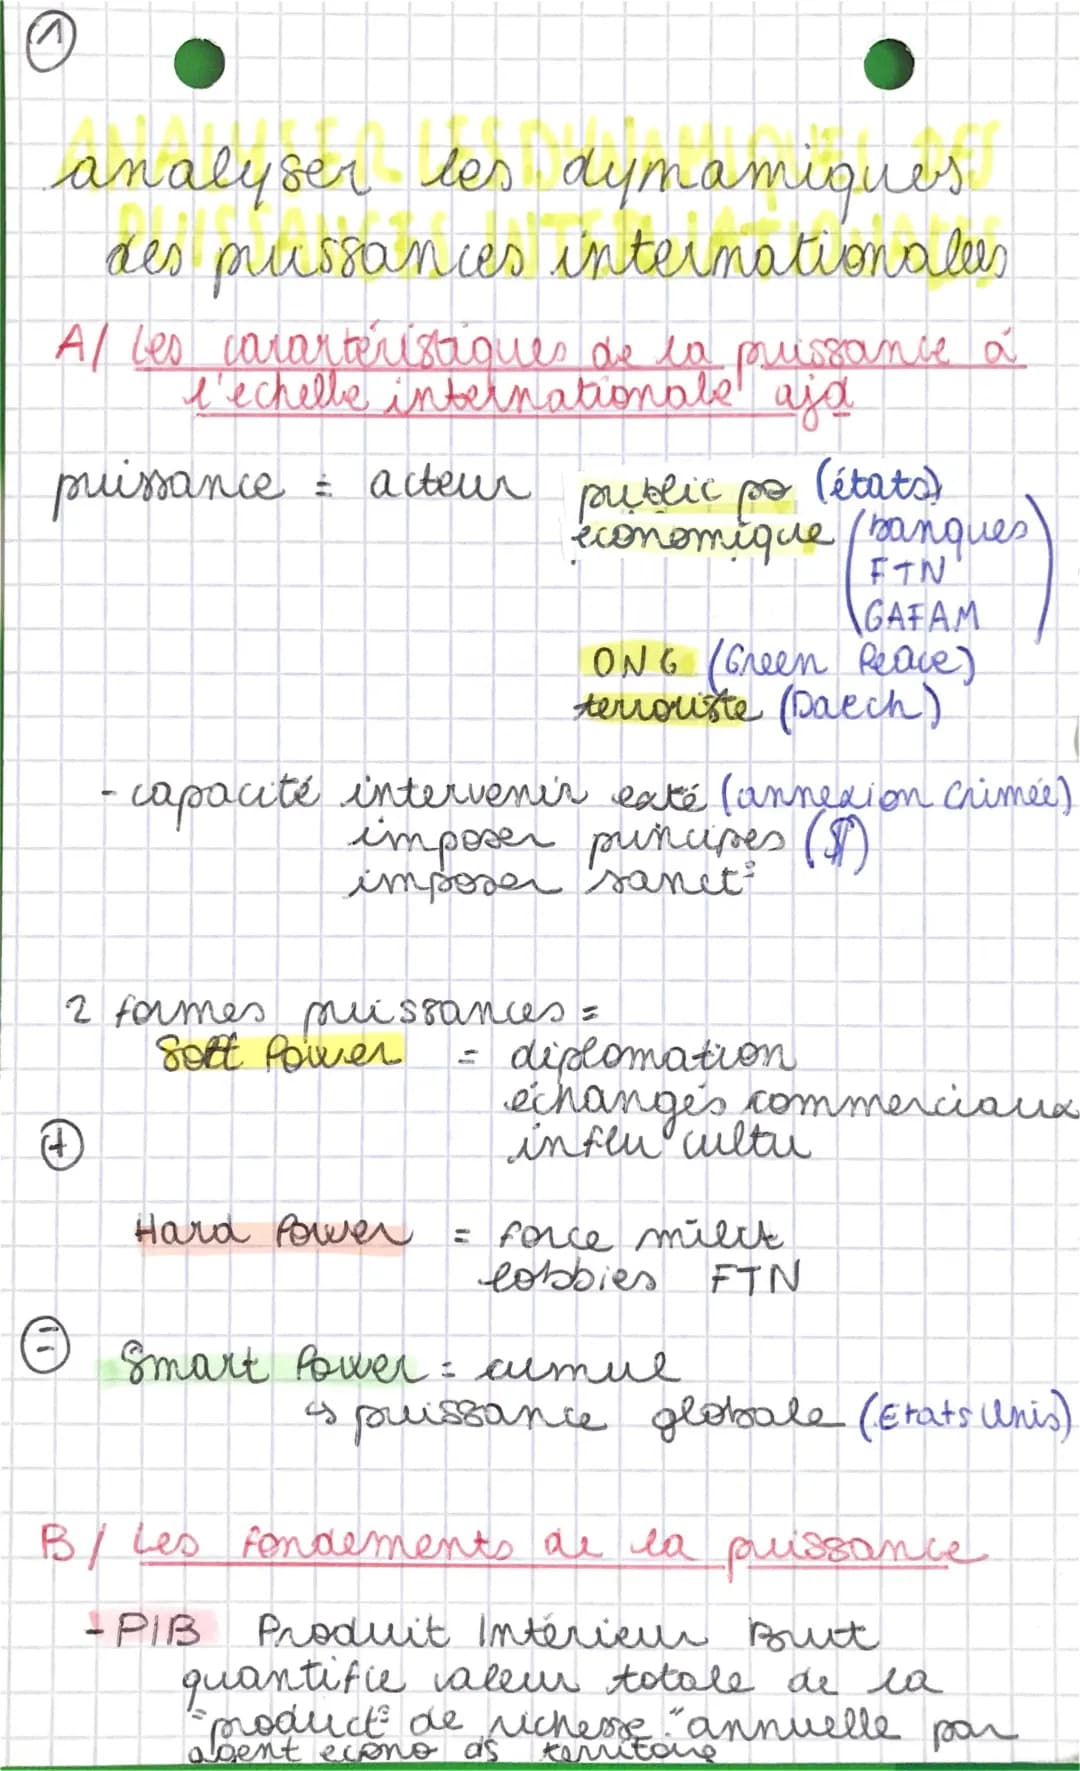 1
ANALYSER LES DYNAMIQUES DES
PUISSANCES INTERNATIONALES
analyser les dynamiques
des puissances internationales
A/ Les caractéristiques de la puissance à
l'echelle internationale ajd
puissance = acteur public po (états)
économique (banques
FTN
GAFAM)
ONG (Green Peace)
terroriste (Daech)
- capacité intervenir exté (annexion Crimée)
imposer principes ($)
imposer sanct°
2 formes puissances =
Soft Power = diplomation
échanges commerciaux
influ cultu
+
Hard Power = force milit
lobbies FTN
=
Smart Power = cumul
↳ puissance globale (Etats Unis)
B/ Les fondements de la puissance
- PIB Produit Intérieur Brut
quantifie valeur totale de la
"product° de richesse" annuelle par
agent écono ds territoire